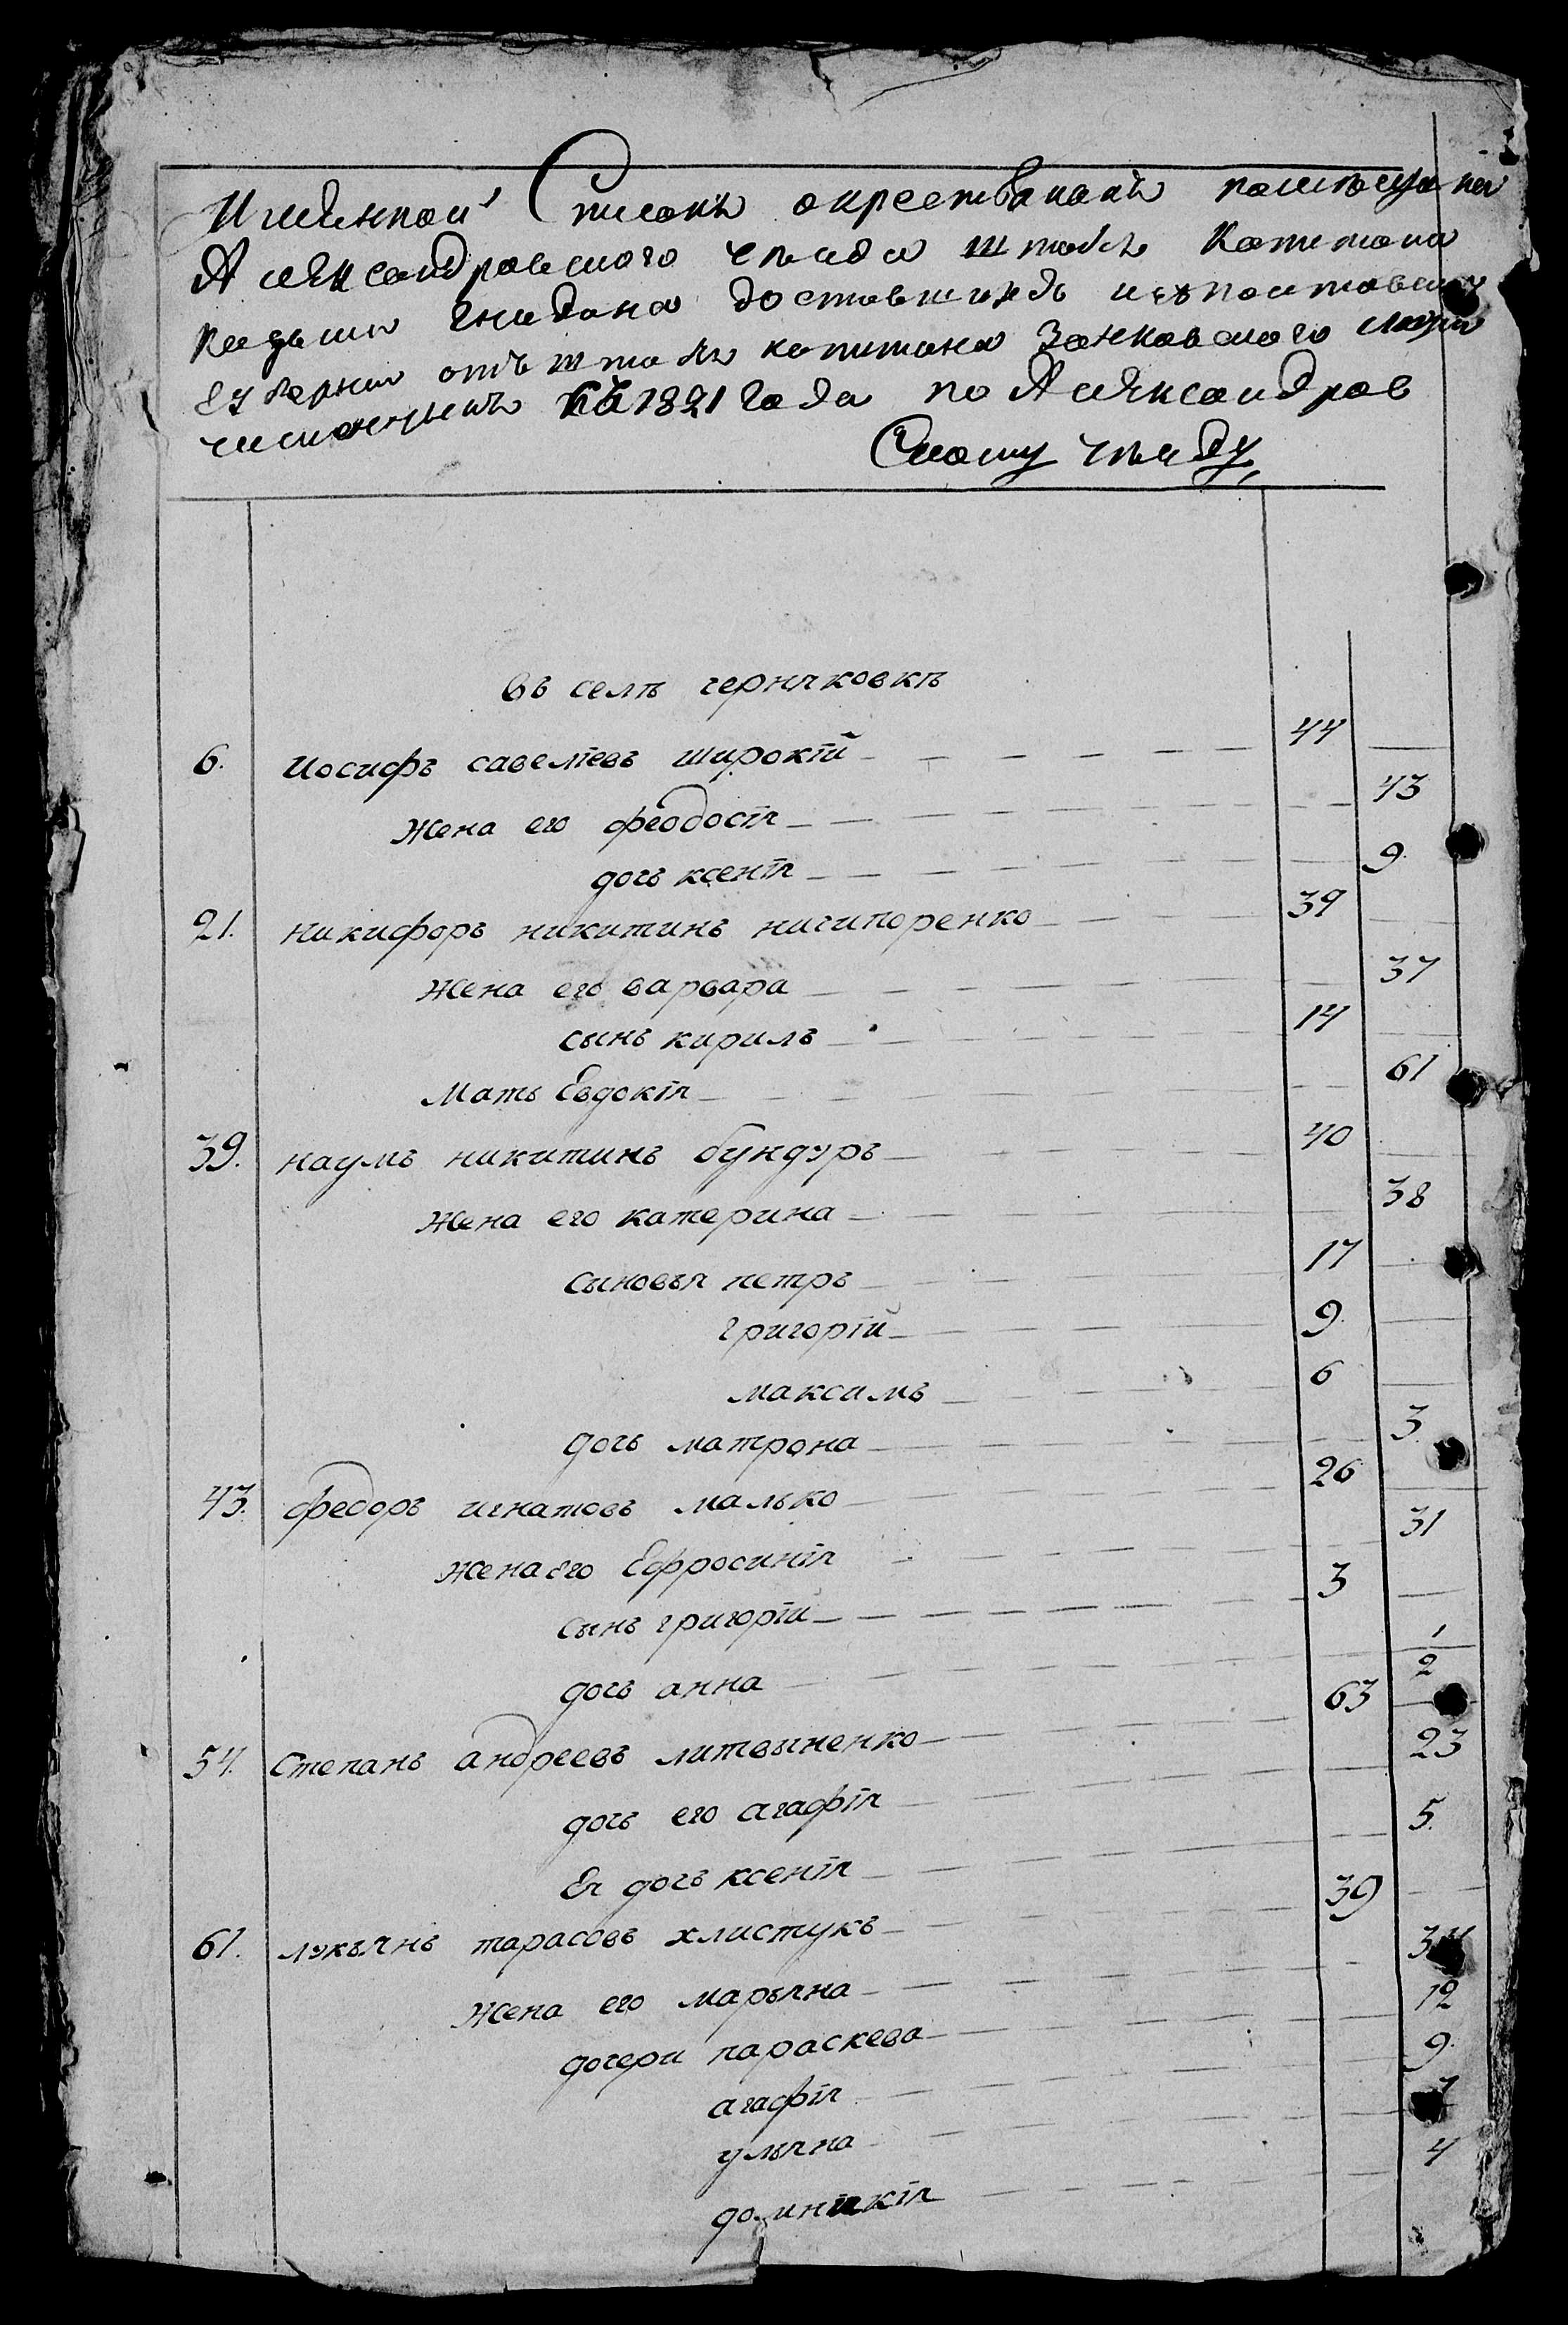 Именной Списокъ окрестьянахъ помѣщика
Александровского уѣзда штабсъ Капитана
Гнедина доставшихся изъполтавской
Губернии отъ штабсъ капитана Занковского
къ 1821 года по Александров
Скому уѣзду
въ селѣ чернячковкѣ
6. Иосифъ савелїевъ широкїй 44
жена его феодосїя 43
дочь ксенїя 9.
21. никифоръ никитинъ ничипоренко 39
жена его варвара 37
сынъ кирилъ 14
Мать Евдокїя 61
39. наумъ никитинъ бундуръ 40
жена его катерина 38
сыновья петръ 17
григорїй 9.
максимъ 6
дочь матрона 3
43. федоръ игнатовъ малько 26
жена его Ефросинїя 31
сынъ григорїй 3
дочь анна 1/2
54. Степанъ андреевъ литвыненко 63
дочь его агафїя 23
Ея дочь ксенїя 5.
61. лукьянъ тарасовъ хлистукъ 39
жена его марьяна
дочери параскева 12
агафїя 9.
ульяна
доминикїя 4